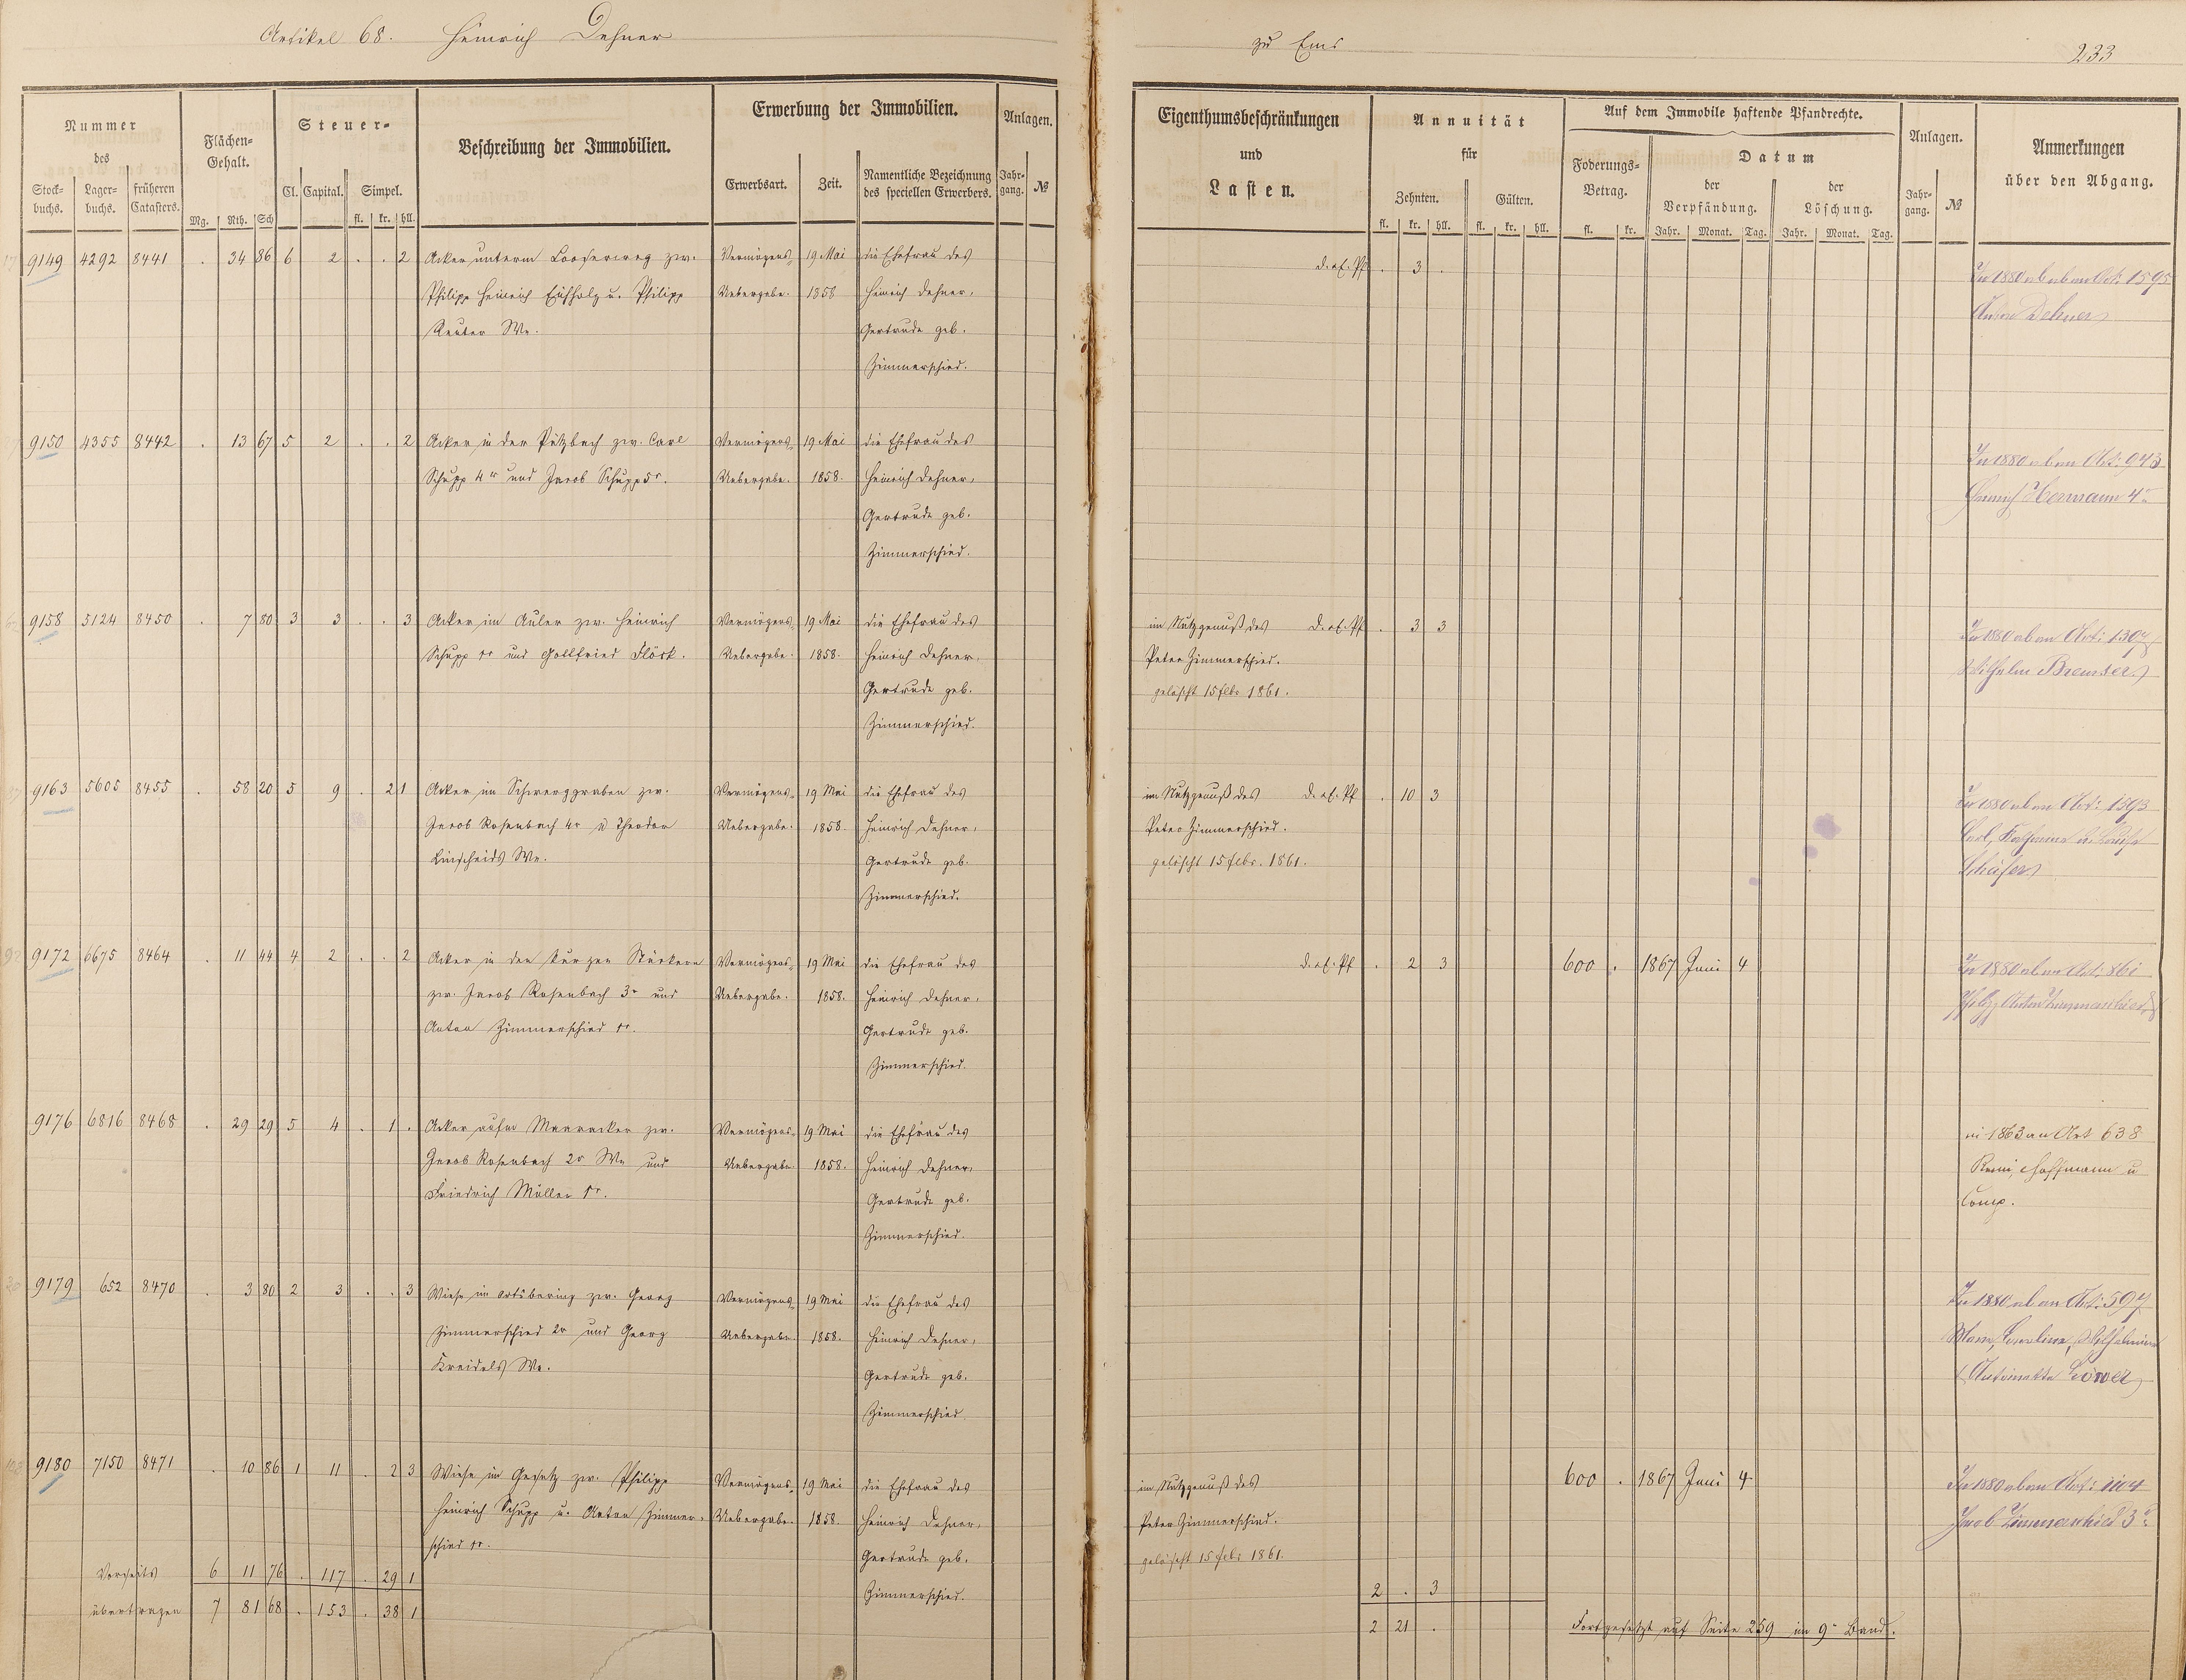 Artikel 68. Heinrich Dehner
zu Ems
233
Nummer des
Stock-buchs. Lager-buchs. früheren Catasters.
Flächen-Gehalt.
Mg. Rth. Sch
Steuer-
Cl. Capital. Simpel.
fl. kr. hll.
Beschreibung der Immobilien.
Erwerbung der Immobilien.
Erwerbsart. Zeit. Namentliche Bezeichnung des speciellen Erwerbers.
Anlagen.
Jahr-gang. №
Eigenthumsbeschränkungen und Lasten.
Annuität für
Zehnten. Gülten.
fl. kr. hll. fl. kr. hll.
Auf dem Immobile haftende Pfandrechte.
Foderungs-Betrag.
fl. kr.
Datum
der Verpfändung. der Löschung.
Jahr. Monat. Tag. Jahr. Monat. Tag.
Anlagen.
Jahr-gang. №
Anmerkungen über den Abgang.
9149 4292 8441 . 34 86 6 2 . . 2 Acker unterm Looserweg zw. Vermögens- 19 Mai die Ehefrau des d. d. Pf . 3 .
Philipp Heinrich Eichholz u. Philipp Uebergabe. 1858 Heinrich Dehner, In 1880 ab an Art. 1595
Reuter We. Gertrude geb. Dehner
Zimmerschied.
9150 4355 8442 . 13 67 5 2 . . 2 Acker in der Pitzbach zw. Carl Vermögens- 19 Mai die Ehefrau des
Schupp 4r und Jacob Schupp 5r. Uebergabe. 1858. Heinrich Dehner, In 1880 ab an Art. 943
Gertrude geb. Heinrich Hermann 4r
Zimmerschied.
9158 5124 8450 . 7 80 3 3 . . 3 Acker im Auler zw. Heinrich Vermögens- 19 Mai die Ehefrau des im Nutzgenuß des . 3 3
Schupp 1r und Gottfried Flöck. Uebergabe. 1858. Heinrich Dehner, Peter Zimmerschied. In 1880 ab an Art. 1307
Gertrude geb. gelöscht 15 febr 1861. Wilhelm Bremser
Zimmerschied.
9163 5605 8455 . 58 20 5 9 . 2 1 Acker im Schwerzgraben zw. Vermögens- 19 Mai die Ehefrau des im Nutzgenuß des . 10 3
Jacob Rosenbach 4r u Theodor Uebergabe. 1858. Heinrich Dehner, Peter Zimmerschied. In 1880 ab an Art. 1393
Linscheids We. Gertrude geb. gelöscht 15 febr. 1861.
Zimmerschied. Schäfer
9172 6675 8464 . 11 44 4 2 . . 2 Acker in den kurzen Stücken Vermögens- 19 Mai die Ehefrau des . 2 3 600 . 1867 Juni 4
zw. Jacob Rosenbach 3r und Uebergabe. 1858. Heinrich Dehner, In 1880 ab an Art. 861
Anton Zimmerschied 1r. Gertrude geb. Anton Zimmerschied
Zimmerschied.
9176 6816 8468 . 29 29 5 4 . 1 . Acker aufm Maaracker zw. Vermögens- 19 Mai die Ehefrau des in 1863 an Art 638
Jacob Rosenbach 2r We und Uebergabe. 1858. Heinrich Dehner, Remi, Hoffmann u
Friedrich Müller 1r. Gertrude geb. Comp.
Zimmerschied.
9179 652 8470 . 3 80 2 3 . . 3 Wiese im Ortsbering zw. Georg Vermögens- 19 Mai die Ehefrau des In 1880 ab an Art. 597
Zimmerschied 2r und Georg Uebergabe. 1858. Heinrich Dehner, Carolina, Wilhelmine
Kreidels We. Gertrude geb. Antoinette
Zimmerschied.
9180 7150 8471 . 10 86 1 11 . 2 3 Wiese im Gesetz zw. Philipp Vermögens- 19 Mai die Ehefrau des im Nutzgenuß des 600 . 1867 Juni 4 In 1880 ab an Art. 1104
Heinrich Schupp u. Anton Zimmer- Uebergabe. 1858. Heinrich Dehner, Peter Zimmerschied. Jacob Zimmerschied 3r
schied 1r. Gertrude geb. gelöscht 15 feb. 1861.
Zimmerschied.
Vorseits 6 11 76 . 117 . 29 1 2 . 3
übertragen 7 81 68 . 153 . 38 1 2 21 .
Fortgesetzt auf Seite 259 im 9r Band.